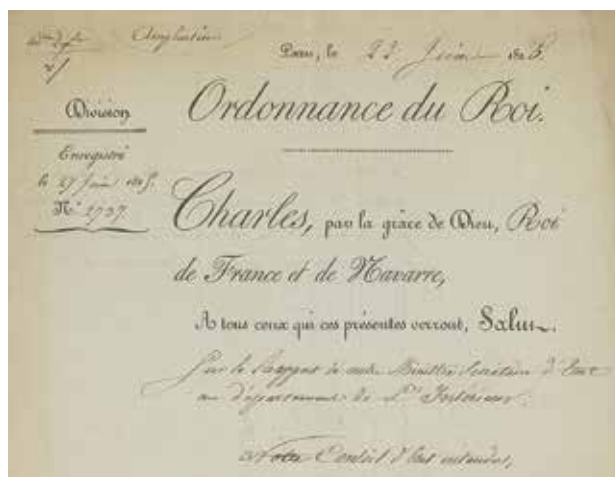 Ampliation
Paris, le 22 Juin 1825.
Division
Ordonnance du Roi.
Enregistré
le 27 Juin 1825.
N° 2737
Charles, par la grâce de Dieu, Roi
de France et de Navarre,
A tous ceux qui ces présentes verront, Salut.
Sur le Rapport de notre Ministre Secrétaire d'Etat
au département de l'Intérieur.
Notre Conseil d'Etat entendu,